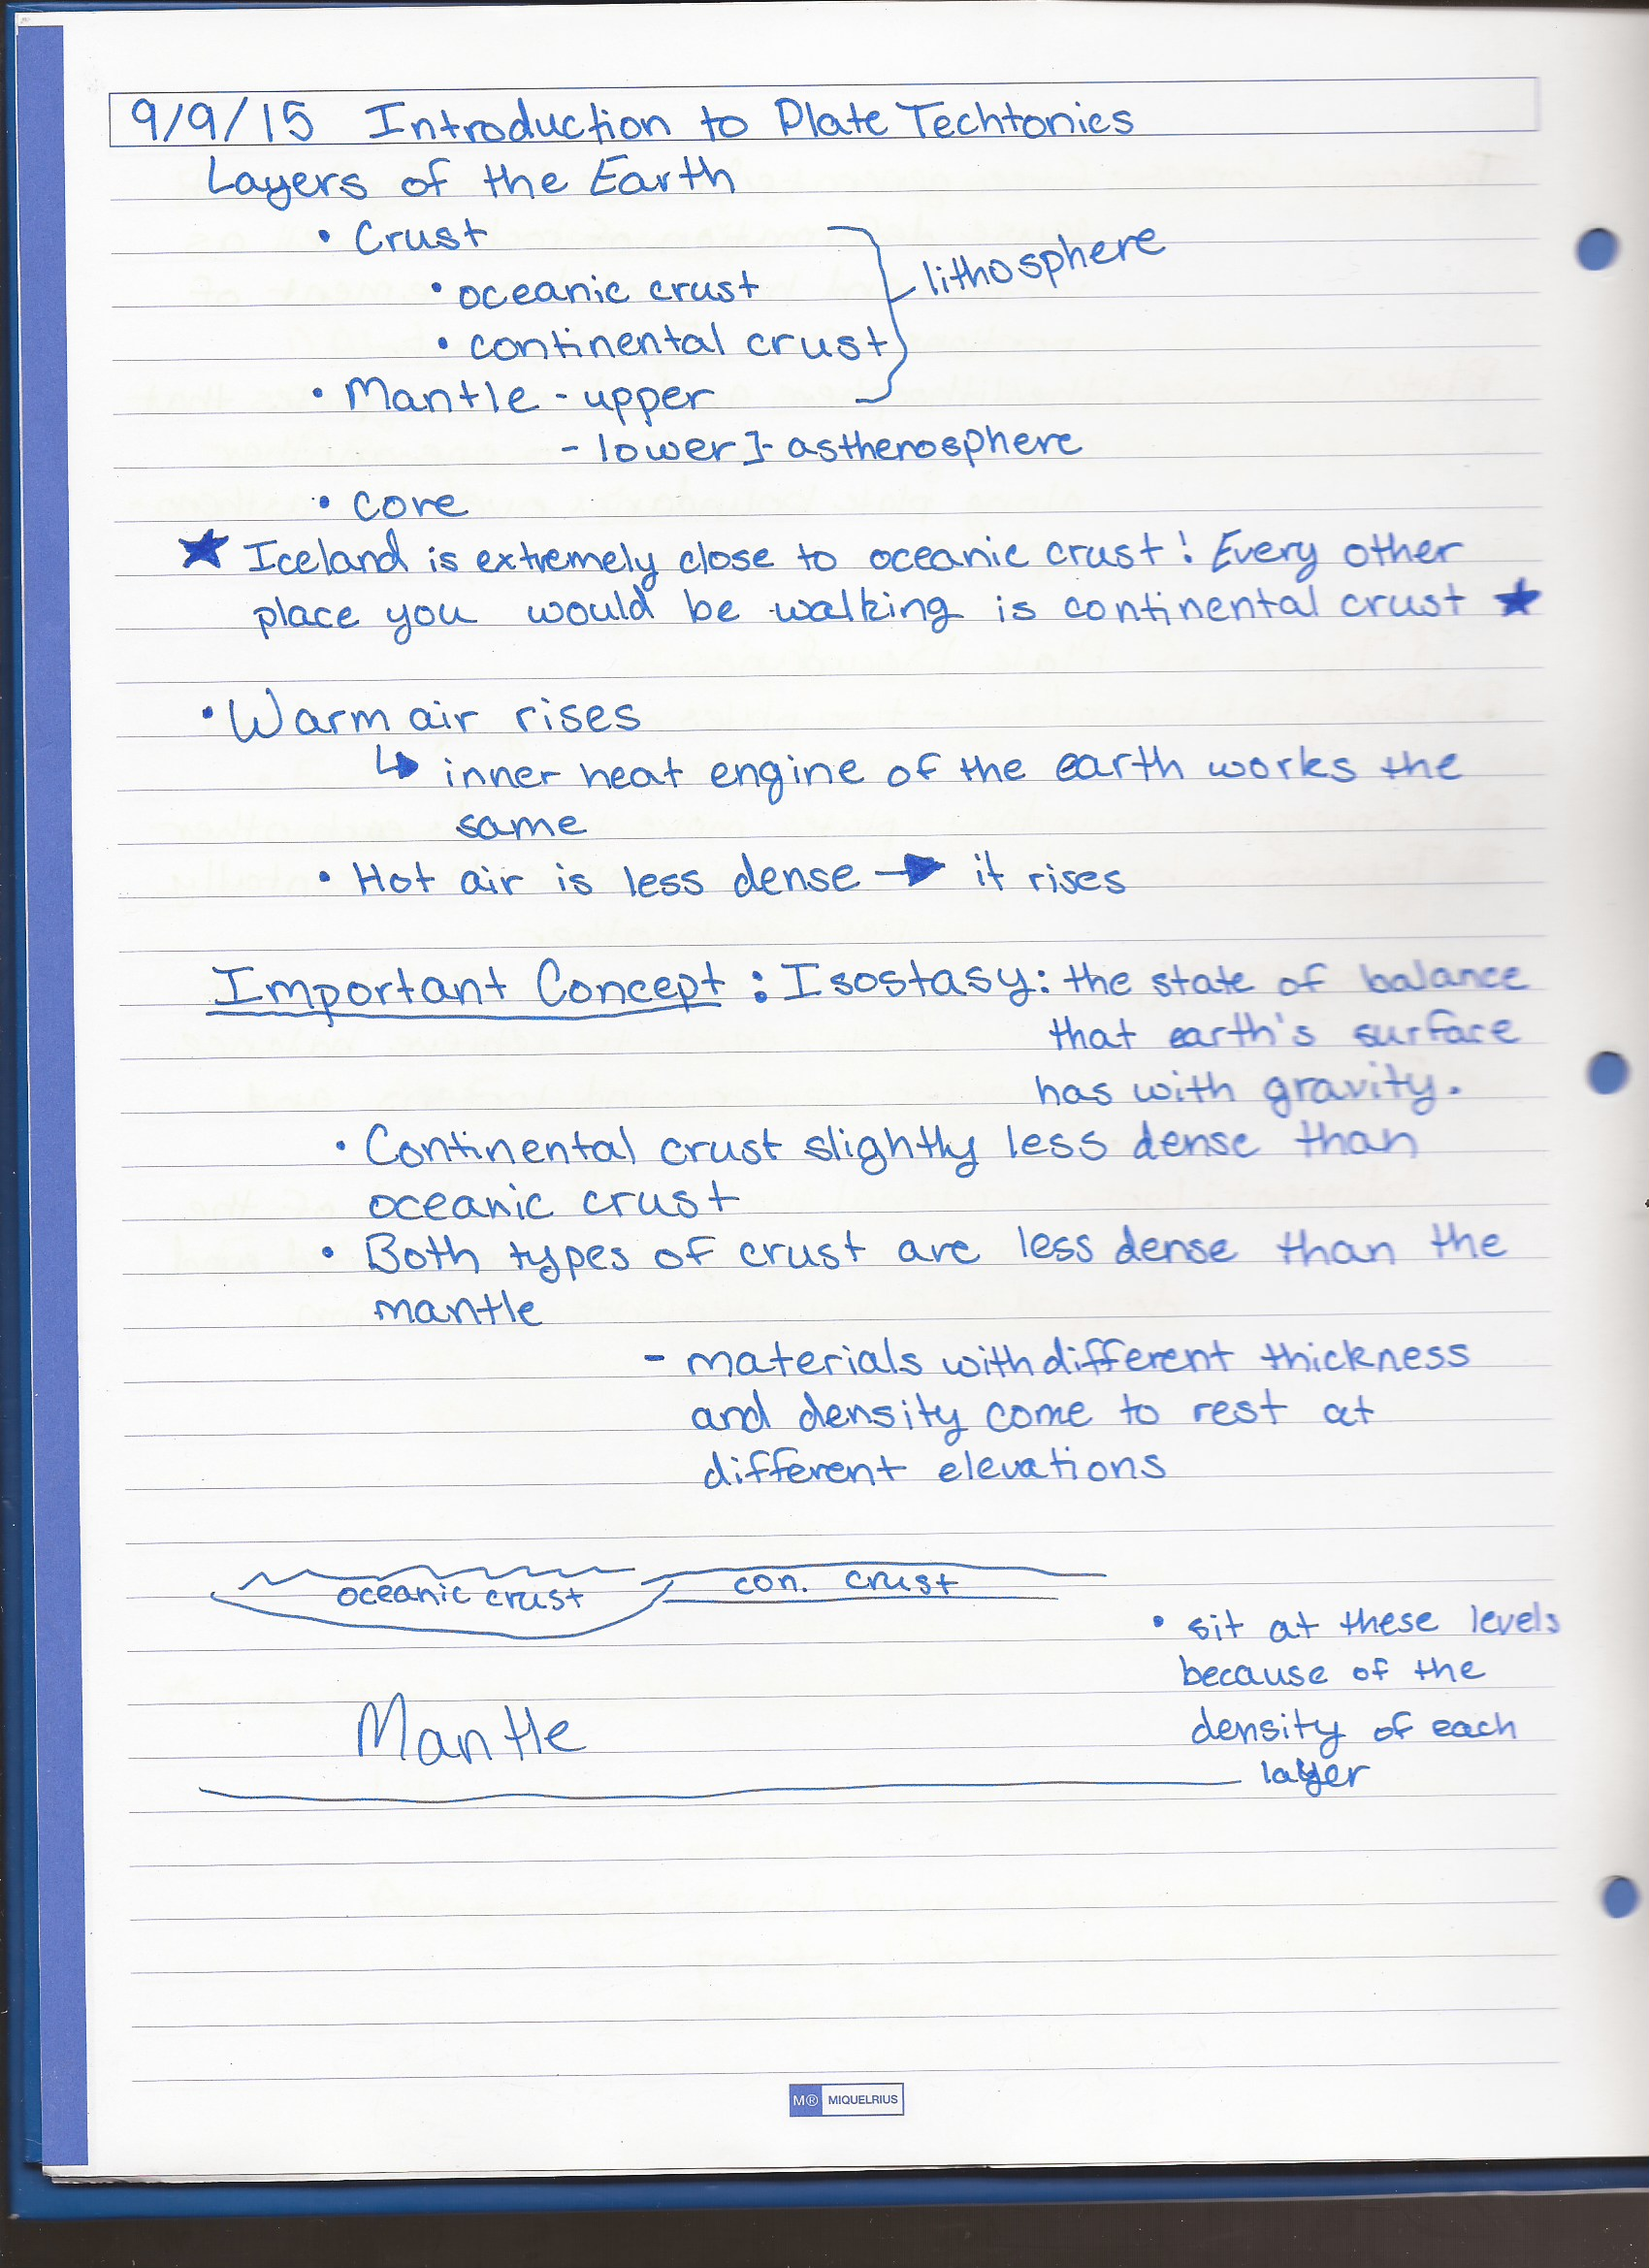 9/9/15 Introduction to Plate Techtonics
Layers of the Earth
• Crust
• oceanic crust
lithosphere
• continental crust
• Mantle - upper
- lower }- asthenosphere
• core
★ Iceland is extremely close to oceanic crust! Every other
place you would be walking is continental crust ★
• Warm air rises
↳ inner heat engine of the earth works the
same
• Hot air is less dense → it rises
Important Concept : Isostasy: the state of balance
that earth's surface
has with gravity.
• Continental crust slightly less dense than
oceanic crust
• Both types of crust are less dense than the
mantle
- materials with different thickness
and density come to rest at
different elevations
oceanic crust con. crust
• sit at these levels
because of the
density of each
layer
Mantle
M® MIQUELRIUS